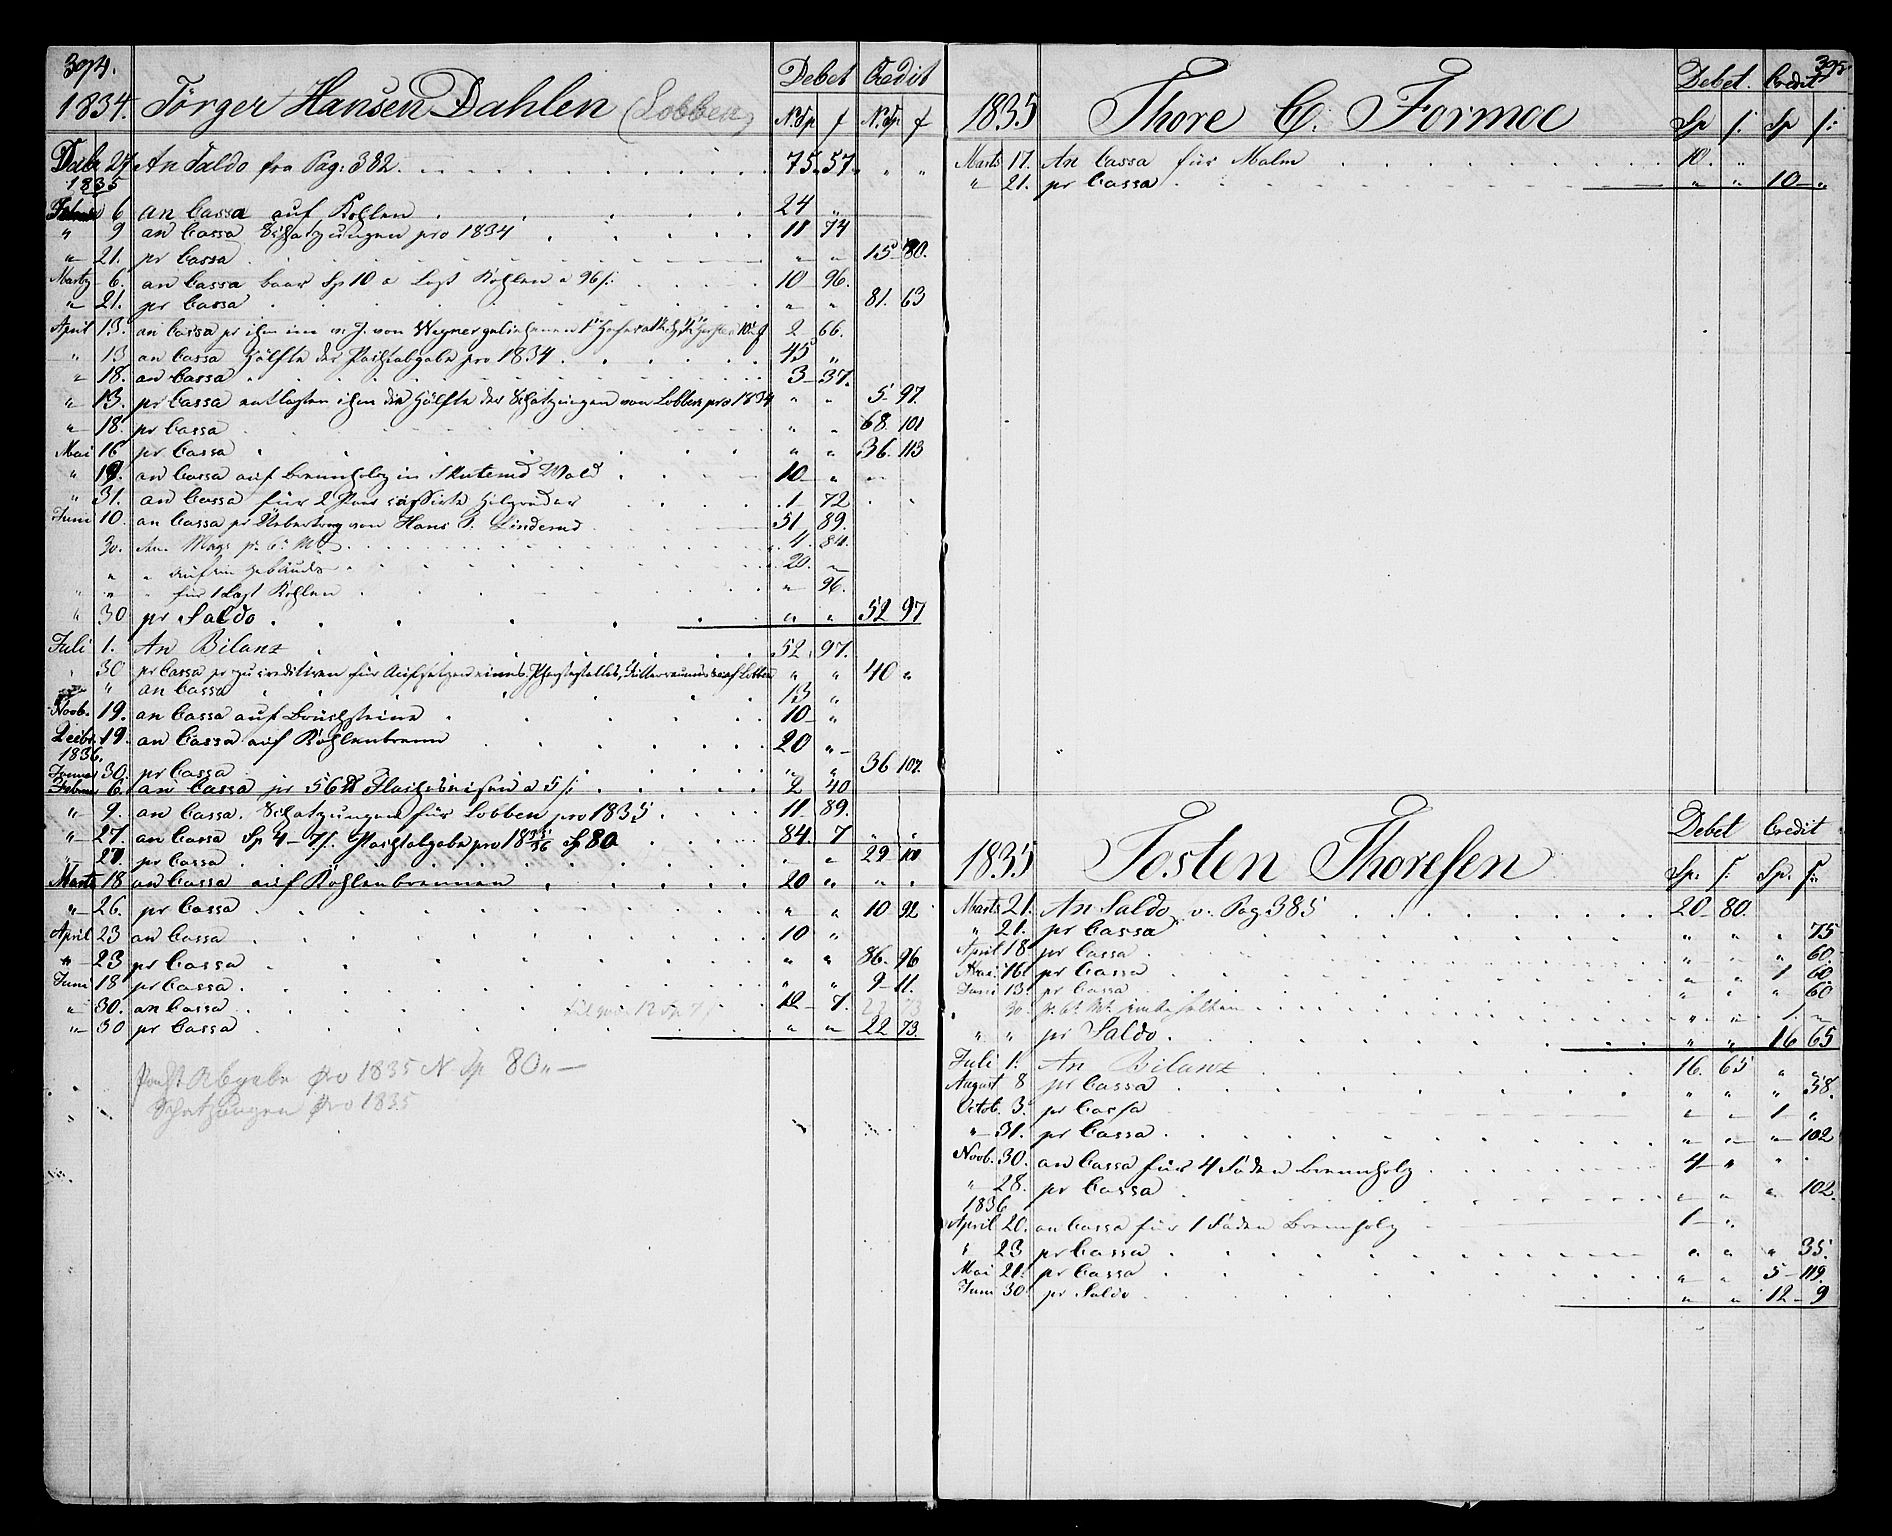 394.
Debet Credit
1834. Törger Hansen Dahlen (Lobben)
N. Sp f N. Sp f
Decbr 27. An Saldo fra Pag: 382. 75. 57. " "
1835
Februar 6 an Cassa auf Kohlen 24 "
" 9 an Cassa Schatzungen pro 1834 11 74
" 21. pr Cassa " " 15 80.
Marty 6. an Cassa baar Sp 10 a Last Kohlen a 96 f: 10 96.
" 21. pr Cassa " " 81. 63
April 13. an Cassa pr ihm im v. J. von Wegner geliehenen 2 66.
" 13 an Cassa Hälfte der Pachtabgabe pro 1834 45 "
" 18. an Cassa 3 37.
" 13. pr Cassa entlasten ihm die Hälfte der Schatzungen von Lobben pro 1834 " " 5 97.
" 18. pr Cassa " " 68. 101
Mai 16 pr Cassa " " 36. 113
" 19. an Cassa auf Brennholz in Skuterud Wald 10 "
" 31. an Cassa für 2 Paar cassirte 1 72
Juni 10. an Cassa pr Uebertrag von Hans P. Linderud 51 89.
30. An Mag: pr 6: Mt 4. 84.
" " " auf ein Gebäude 20. "
" " " für 1 Last Kohlen " 96.
" 30 pr Saldo " " 52 97
Juli 1. An Bilanz 52 97.
" 30 pr Cassa pr zu creditiren für Aufsetzen eines Pferdestalles, auf Lobben " " 40 "
" " an Cassa 13 "
Novb. 19. an Cassa auf Bruchsteine 10 "
Decbr. 19. an Cassa auf Kohlenbrennen 20 "
1836.
Januar 30. pr Cassa " " 36 107.
Februar 6. an Cassa pr 56 ℔ a 5 f: 2 40
" 9. an Cassa. Schatzungen für Lobben pro 1835 11 89.
" 27. an Cassa Sp 4 - 7 f. Pachtabgabe pro 1835/36 Sp 80 84. 7 " "
" 27. pr Cassa " " 29 100
Marts 18 an Cassa auf Kohlenbrennen 20 " " "
" 26. pr Cassa " " 10 92
April 23 an Cassa 10 "
" 23 pr Cassa " " 86. 96
Juni 18 pr Cassa " " 9 11.
" 30. an Cassa 12 7. 22 73
" 30 pr Cassa " " 22 73.
Pacht Abgabe pro 1835 N Sp 80 " —
Schatzungen pro 1835
395.
Debet. Credit
1835 Thore C. Formoe
Sp f: Sp f:
Marts 17. An Cassa für Malm 10. "
" 21. pr Cassa " " 10 "
Debet Credit
1835 Tosten Thoresen
Sp. f: Sp. f:
Marts 21. An Saldo v. Pag 385 20 80.
" 21. pr Cassa " " " 75
April 18 pr Cassa " " " 60.
Mai 16 pr Cassa " " 1 60
Juni 13. pr Cassa " " " 60
" 30. pr 6t. Mt. " " 1. "
" " pr Saldo " " 16 65
Juli 1: An Bilanz 16. 65 " "
August 8 pr Cassa " " " 38.
Octob. 3. pr Cassa " " 1 "
" 31. pr Cassa " " " 102
Novb. 30. an Cassa für 4 Faden Brennholz 4 " " "
" 28. pr Cassa " " " 102.
1836
April 20. an Cassa für 1 Faden Brennholz 1 "
" 23 pr Cassa " " " 35.
Mai 21. pr Cassa " " 5 119.
Juni 30. pr Saldo " " 12 9